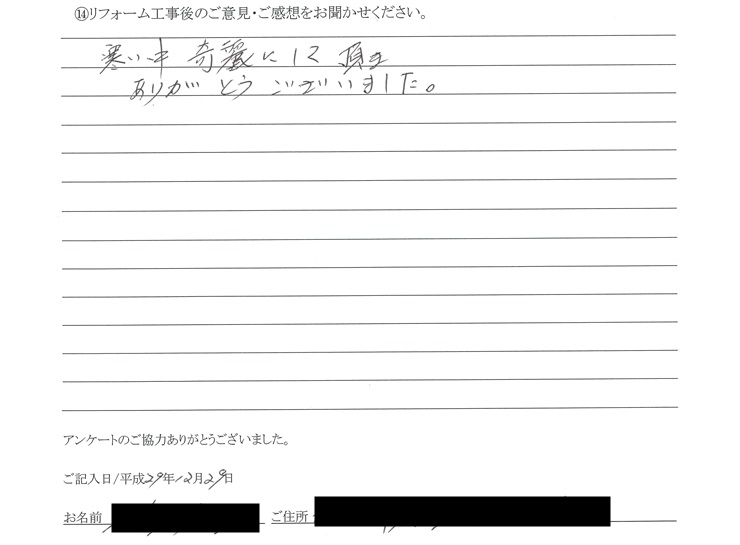 ⑭リフォーム工事後のご意見・ご感想をお聞かせください。
寒い中 奇麗にして 頂き
ありがとうございました。
アンケートのご協力ありがとうございました。
ご記入日/平成29年12月29日
お名前 ご住所